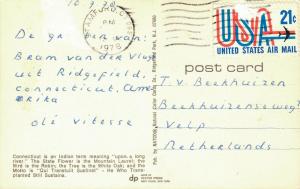 10.9.78
STAMFORD, CT
PM
1978
USA 21c
UNITED STATES AIR MAIL
De groeten van:
Bram van der Vlugt
uit Ridgefield,
Connecticut, Ame
rika
olé vitesse
post card
T.V. Beekhuizen
Beekhuizenseweg
Velp
Netherlands
Connecticut is an Indian term meaning "upon a long
river" The State Flower is the Mountain Laurel; the
Bird is the Robin; the Tree is the White Oak; and the
Motto is "Qui Transtulit Sustinet" - He Who Trans-
planted Still Sustains.
dp